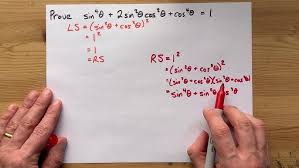 Prove sin⁴θ + 2sin²θcos²θ + cos⁴θ = 1
LS = (sin²θ + cos²θ)²
= 1²
= 1
= RS
RS = 1²
= (sin²θ + cos²θ)²
= (sin²θ + cos²θ)(sin²θ + cos²θ)
= sin⁴θ + sin²θ cos²θ